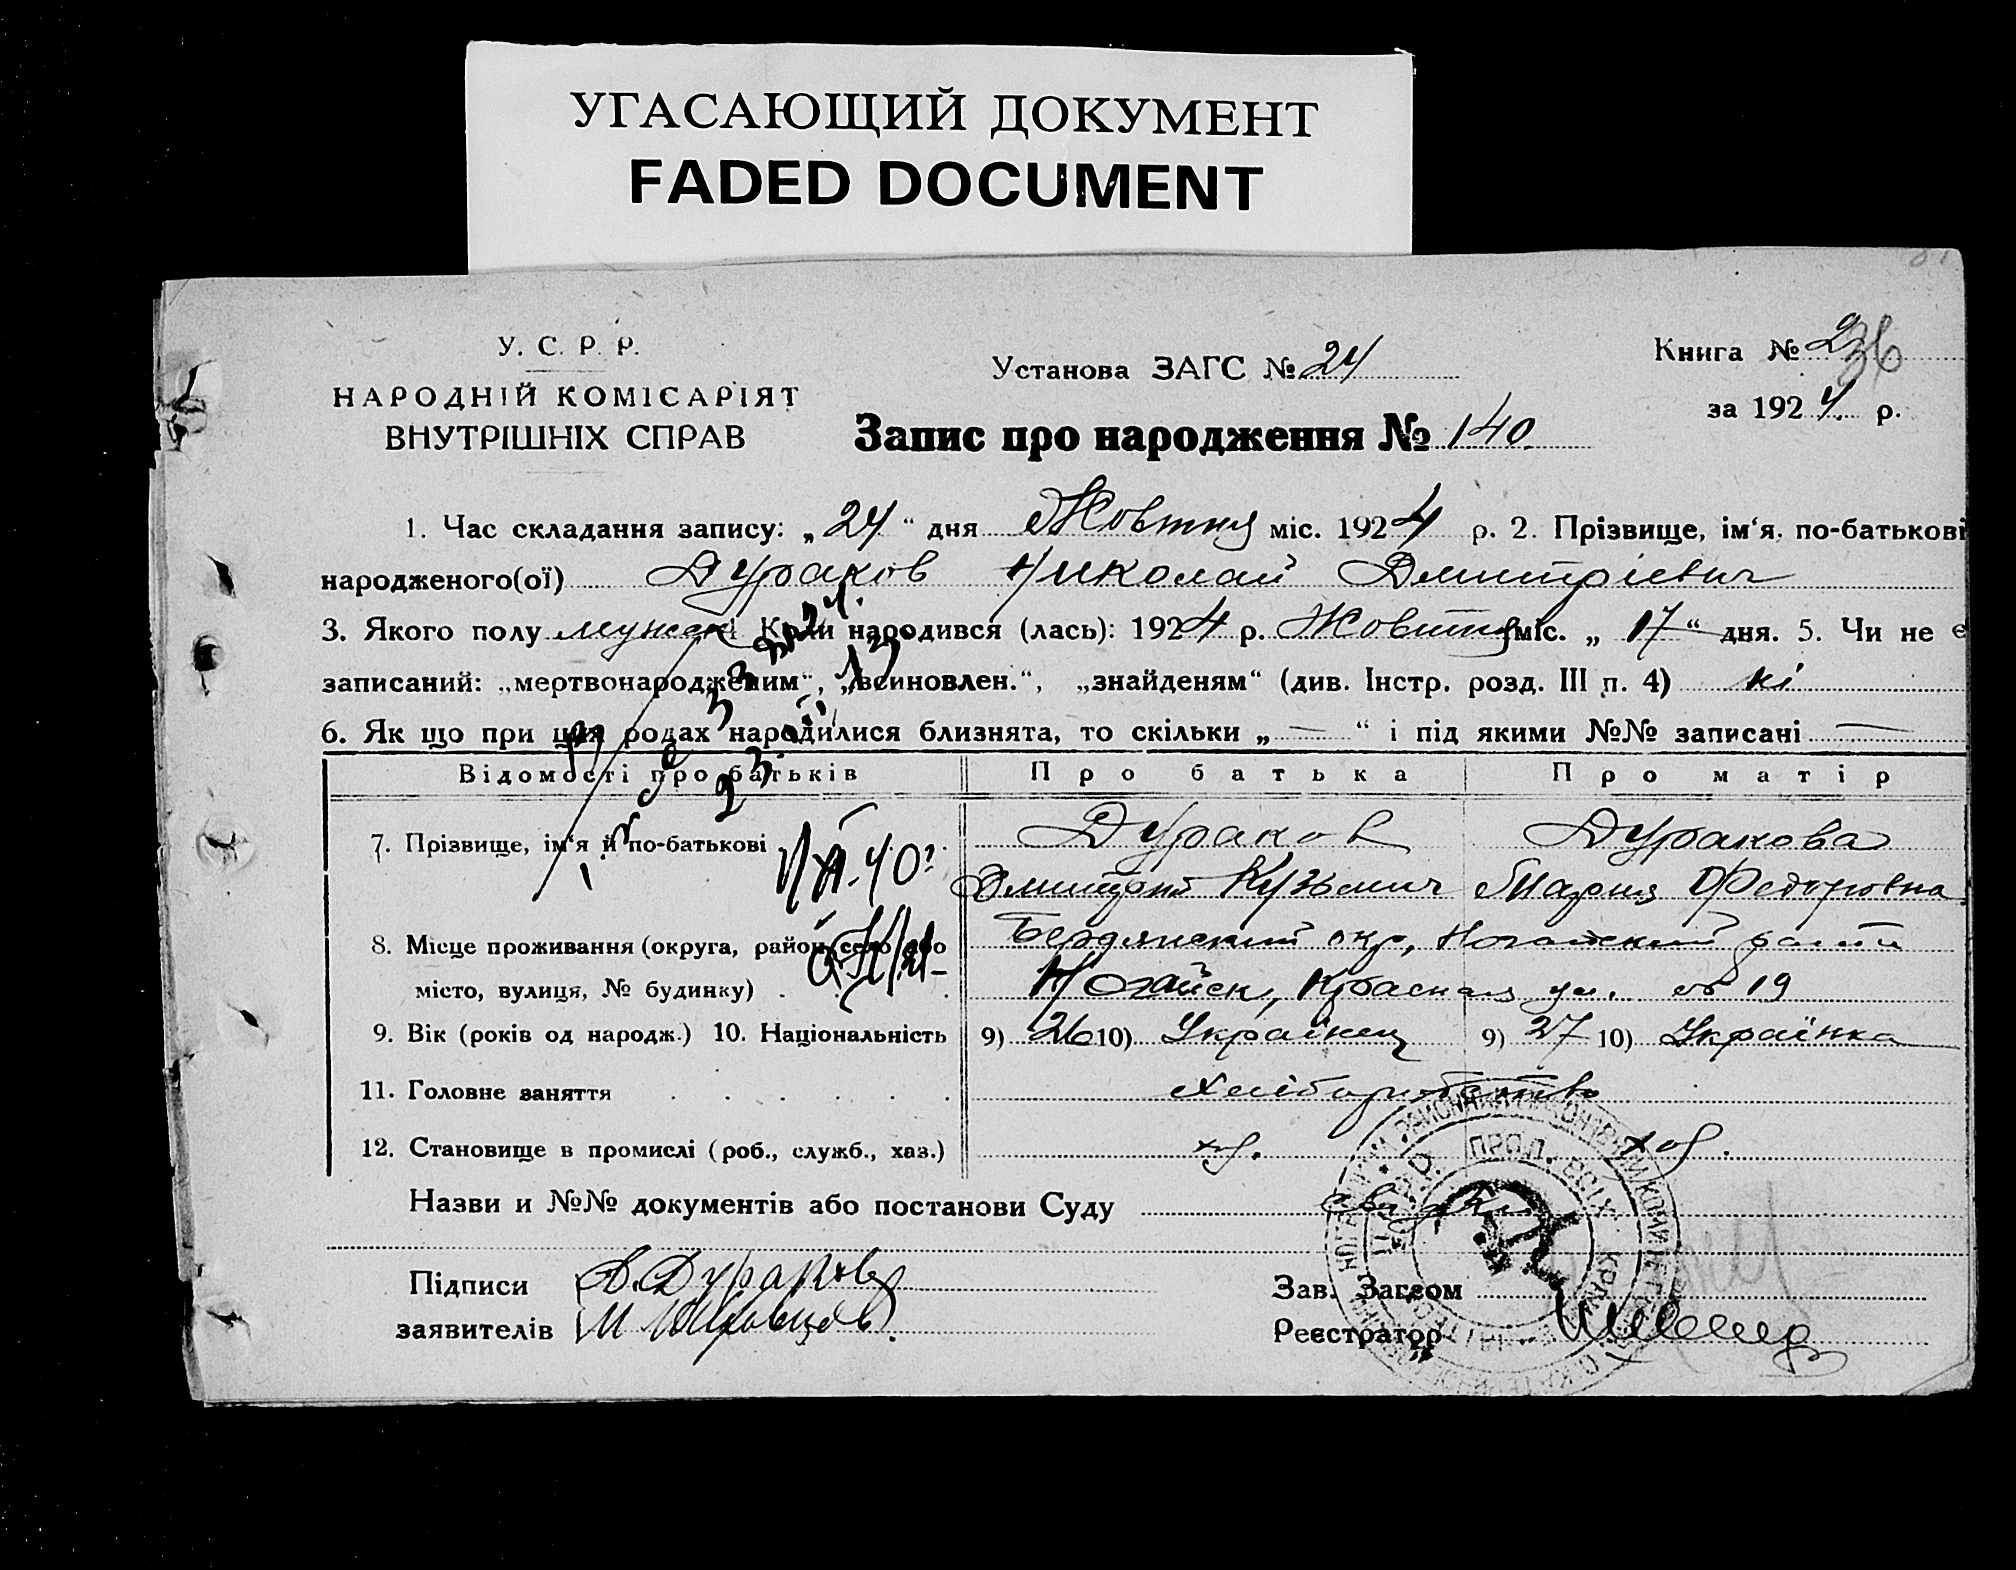 УГАСАЮЩИЙ ДОКУМЕНТ
FADED DOCUMENT
У. С. Р. Р.
НАРОДНІЙ КОМІСАРІЯТ
ВНУТРІШНІХ СПРАВ
Установа ЗАГС № 24
Книга № 2
36
за 1924 р.
Запис про народження № 140
1. Час складання запису: „24“ дня Жовтня міс. 1924 р. 2. Прізвище, ім‘я, по-батькові
народженого(ої) Дураков Николай Дмитрієвич
3. Якого полу мужск 4. Коли народився (лась): 1924 р. Жовтня міс. „17“ дня. 5. Чи не є
записаний: „мертвонародженим“, „всиновлен.“, „знайденям“ (див. Інстр. розд. III п. 4) ні
6. Як що при цих родах народилися близнята, то скільки „—“ і під якими №№ записані —
Відомості про батьків Про батька Про матір
7. Прізвище, ім‘я й по-батькові Дураков Дуракова
Дмитрий Кузьмич Мария Федоровна
8. Місце проживання (округа, район, село або Бердянский окр, Ногайский район
місто, вулиця, № будинку) Ногайск, Красная ул. 19
9. Вік (років од народж.) 10. Національність 9) 26 10) Українец 9) 27 10) Українка
11. Головне заняття Хліборобство
12. Становище в промислі (роб., служб., хаз.) хоз. хоз.
Назви и №№ документів або постанови Суду
Підписи Д. Дураков
заявителів
Зав. Загсом
Реєстратор